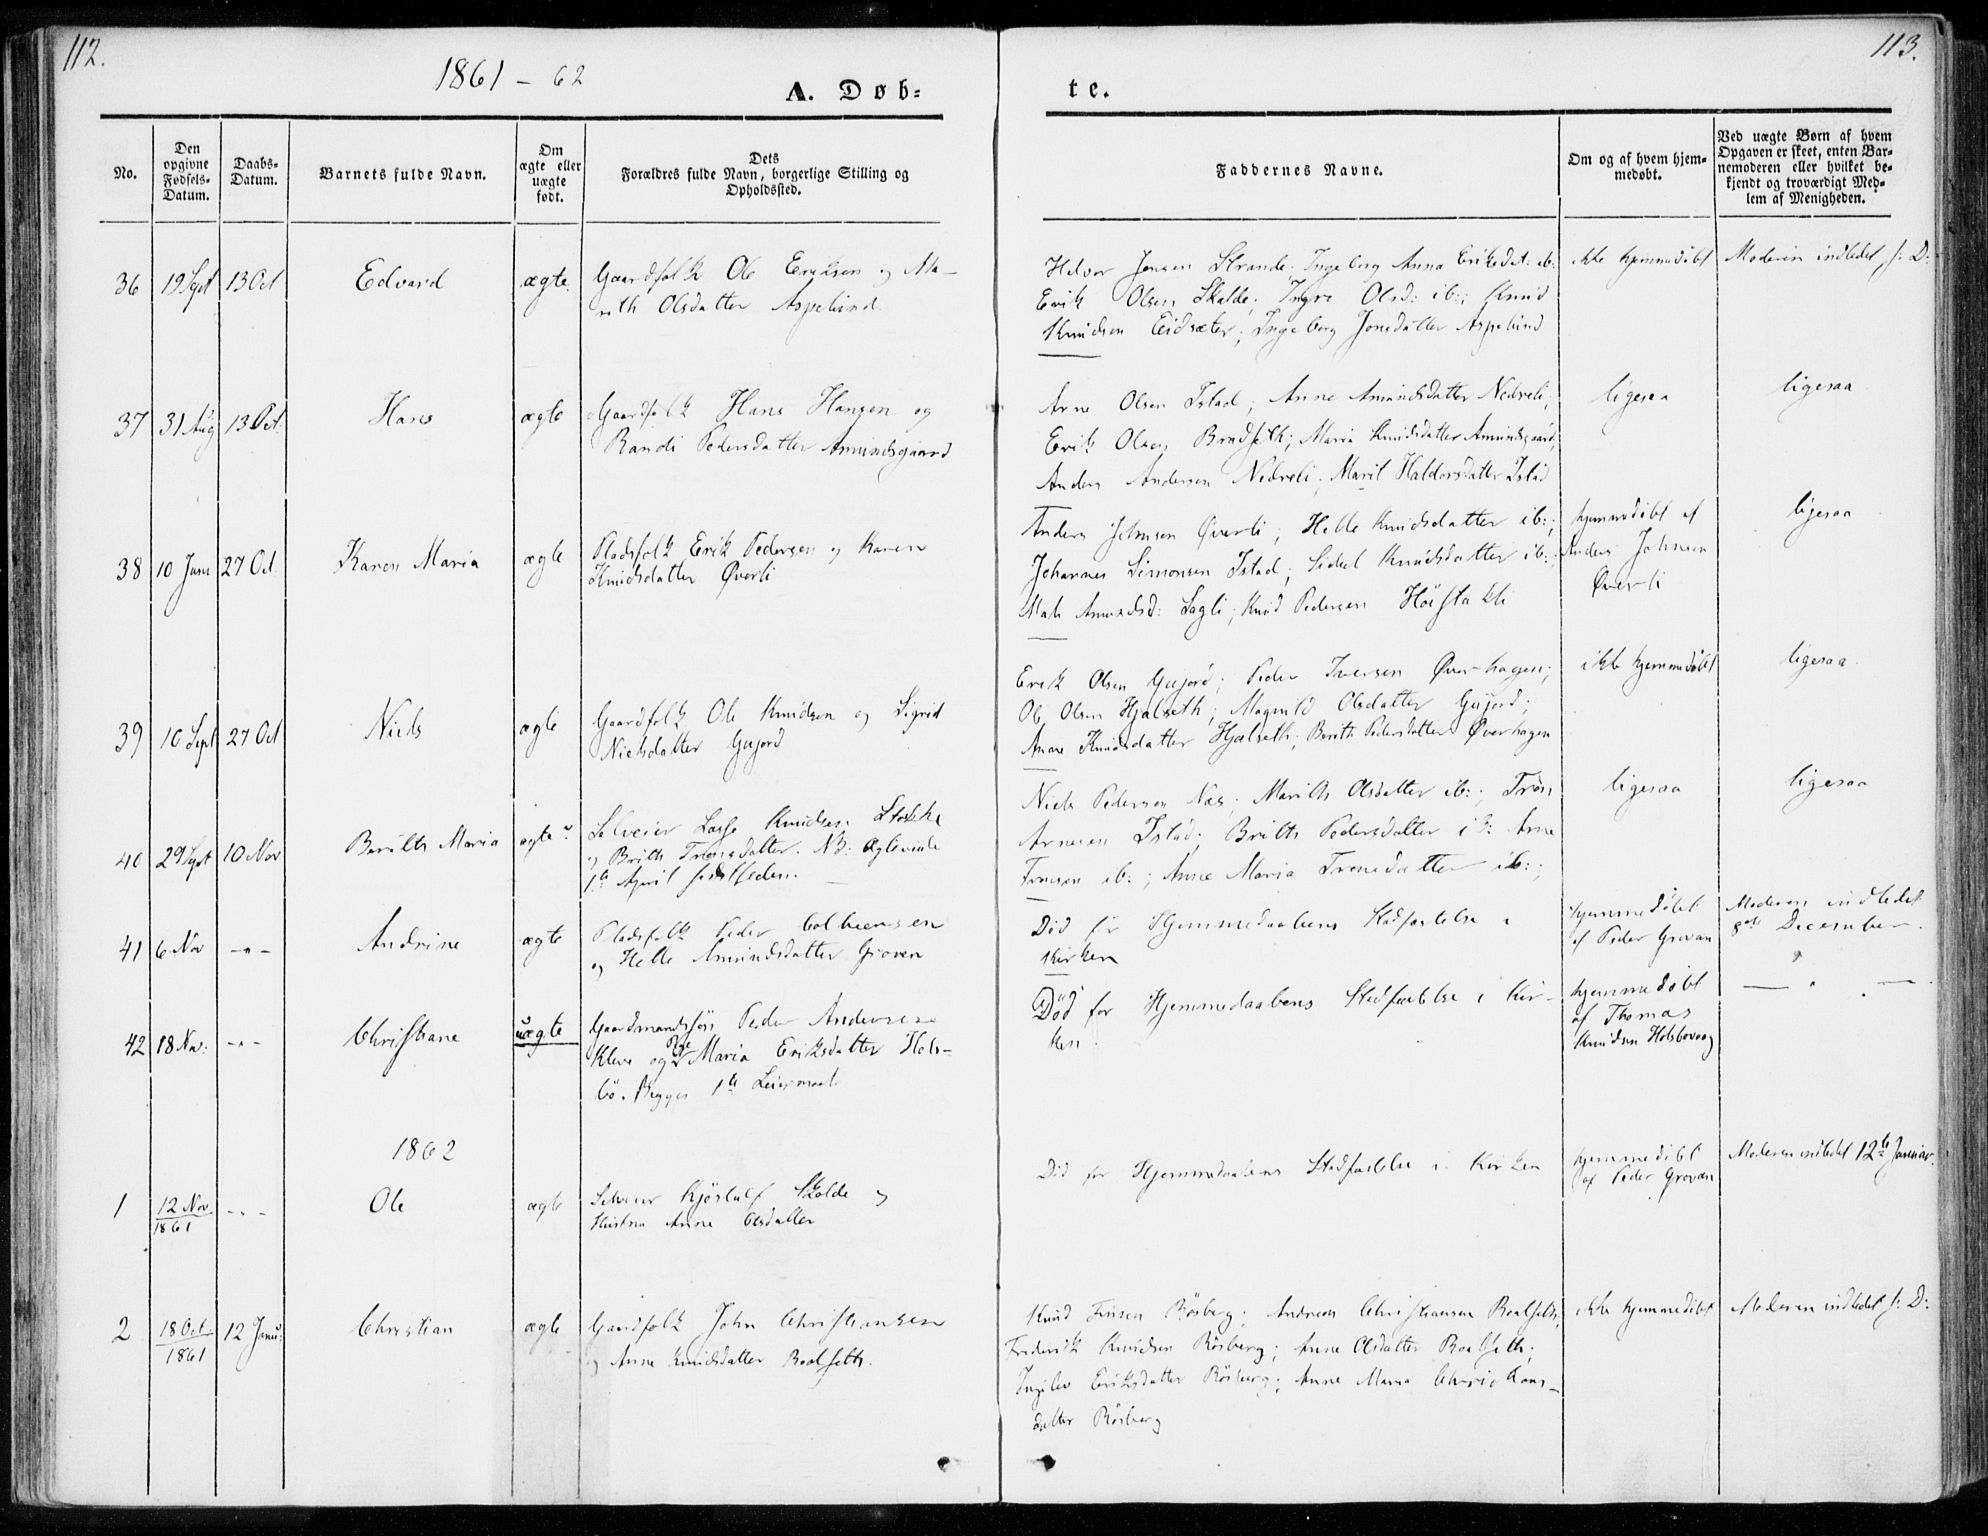 112.
1861 - 62
A. Døb=
te.
113.
No.
Den
opgivne
Fødsels-
Datum.
Daabs-
Datum.
Barnets fulde Navn.
Om
ægte eller
uægte
født.
Dets
Forældres fulde Navn, borgerlige Stilling og
Opholdssted.
Faddernes Navne.
Om og af hvem hjem-
medøbt.
Ved uægte Børn af hvem
Opgaven er skeet, enten Bar-
nemoderen eller hvilket be-
kjendt og troværdigt Med-
lem af Menigheden.
36 19 Sept 13 Oct Edvard ægte.
Gaardfolk Ole Eriksen og Ma-
rith Olsdatter Aspelund.
Helvor Jensen Strande; Ingeborg Anna Eriksdat: ib:
Erik Olsen Skalde; Ingri Olsd: ib:; Knud
Knudsen Eidsæter; Ingeborg Jonsdatter Aspelund
ikke hjemmedöbt
Moderen indledet s: D:
37 31 Aug 13 Oct. Hans ægte
Gaardfolk Hans Hansen og
Randi Pedersdatter Amundsgaard
Arne Olsen Istad; Anne Amundsdatter Nedreli;
Erik Olsen Bradseth; Maria Knudsdatter Amundsgaard;
Anders Andersen Nedreli; Marit Haldorsdatter Istad
ligesaa
ligesaa
38 10 Juni 27 Oct. Karen Maria ægte
Pladsfolk Erik Pedersen og Karen
Knudsdatter Øverli
Anders Johnsen Øverli; Helle Knudsdatter ib:;
Johannes Simonsen Istad; Sidsel Knudsdatter ib:
Amundsd: Lagli; Knud Pedersen
hjemmedöbt af
Anders Johnsen
Øverli
ligesaa
39 10 Sept 27 Oct Niels ægte
Gaardfolk Ole Knudsen og Sigrid
Nielsdatter Gujord
Erik Olsen Gujord; Peder Iversen Øverhagen;
Ole Olsen Hjelseth; Magnild Olsdatter Gujord;
Anne Knudsdatter Hjelseth; Berith Pedersdatter Øverhagen
ikke hjemmedöbt
ligesaa
40 29 Sept 10 Nov Berith Maria ægte
Selveier Lasse Knudsen
og Brith Tronsdatter. NB: Ægteviede
1te April sidstleden.
Niels Pedersen Næs; Marith Olsdatter ib:; Tron
Arnesen Istad; Brith Pedersdatter ib: Arne
Tronsen ib:; Anne Maria Tronsdatter ib:;
ligesaa
ligesaa
41 6 Nov - " - Andrine ægte
Pladsfolk Peder Colbeensen
og Helle Amundsdatter Groven
Död för Hjemmedaabens Stadfæstelse i
Kirken
hjemmedöbt
af Peder Grovan
Moderen indledet
8de December.
42 18 Nov: - " - Christiane uægte
Gaardmandssön Peder Andersen
Kleve og Pige Maria Eriksdatter Hols-
bö. Begges 1te Leiermaal
Död for Hjemmedaabens Stadfæstelse i Kir-
ken
hjemmedöbt
af Thomas
Knudsen Holsbovaag
— " —
1862
1 12 Nov
1861
- " - Ole ægte
Selveier Kjöstolf Skalde og
Hustru Anne Olsdatter
Död for Hjemmedaabens Stadfæstelse i Kirken
hjemmedöbt
af Peder Grovan
Moderen indledet 12te Januar.
2 18 Oct
1861
12 Janu: Christian ægte
Gaardfolk John Christiansen
og Anne Knudsdatter Roalseth.
Knud Finsen Rösberg; Andreas Christiansen Roalseth;
Frederik Knudsen Rösberg; Anne Olsdatter Roalseth;
Eriksdatter Rösberg; Anne Maria Christians-
datter Rösberg
ikke hjemmedöbt
Moderen indledet s: D: